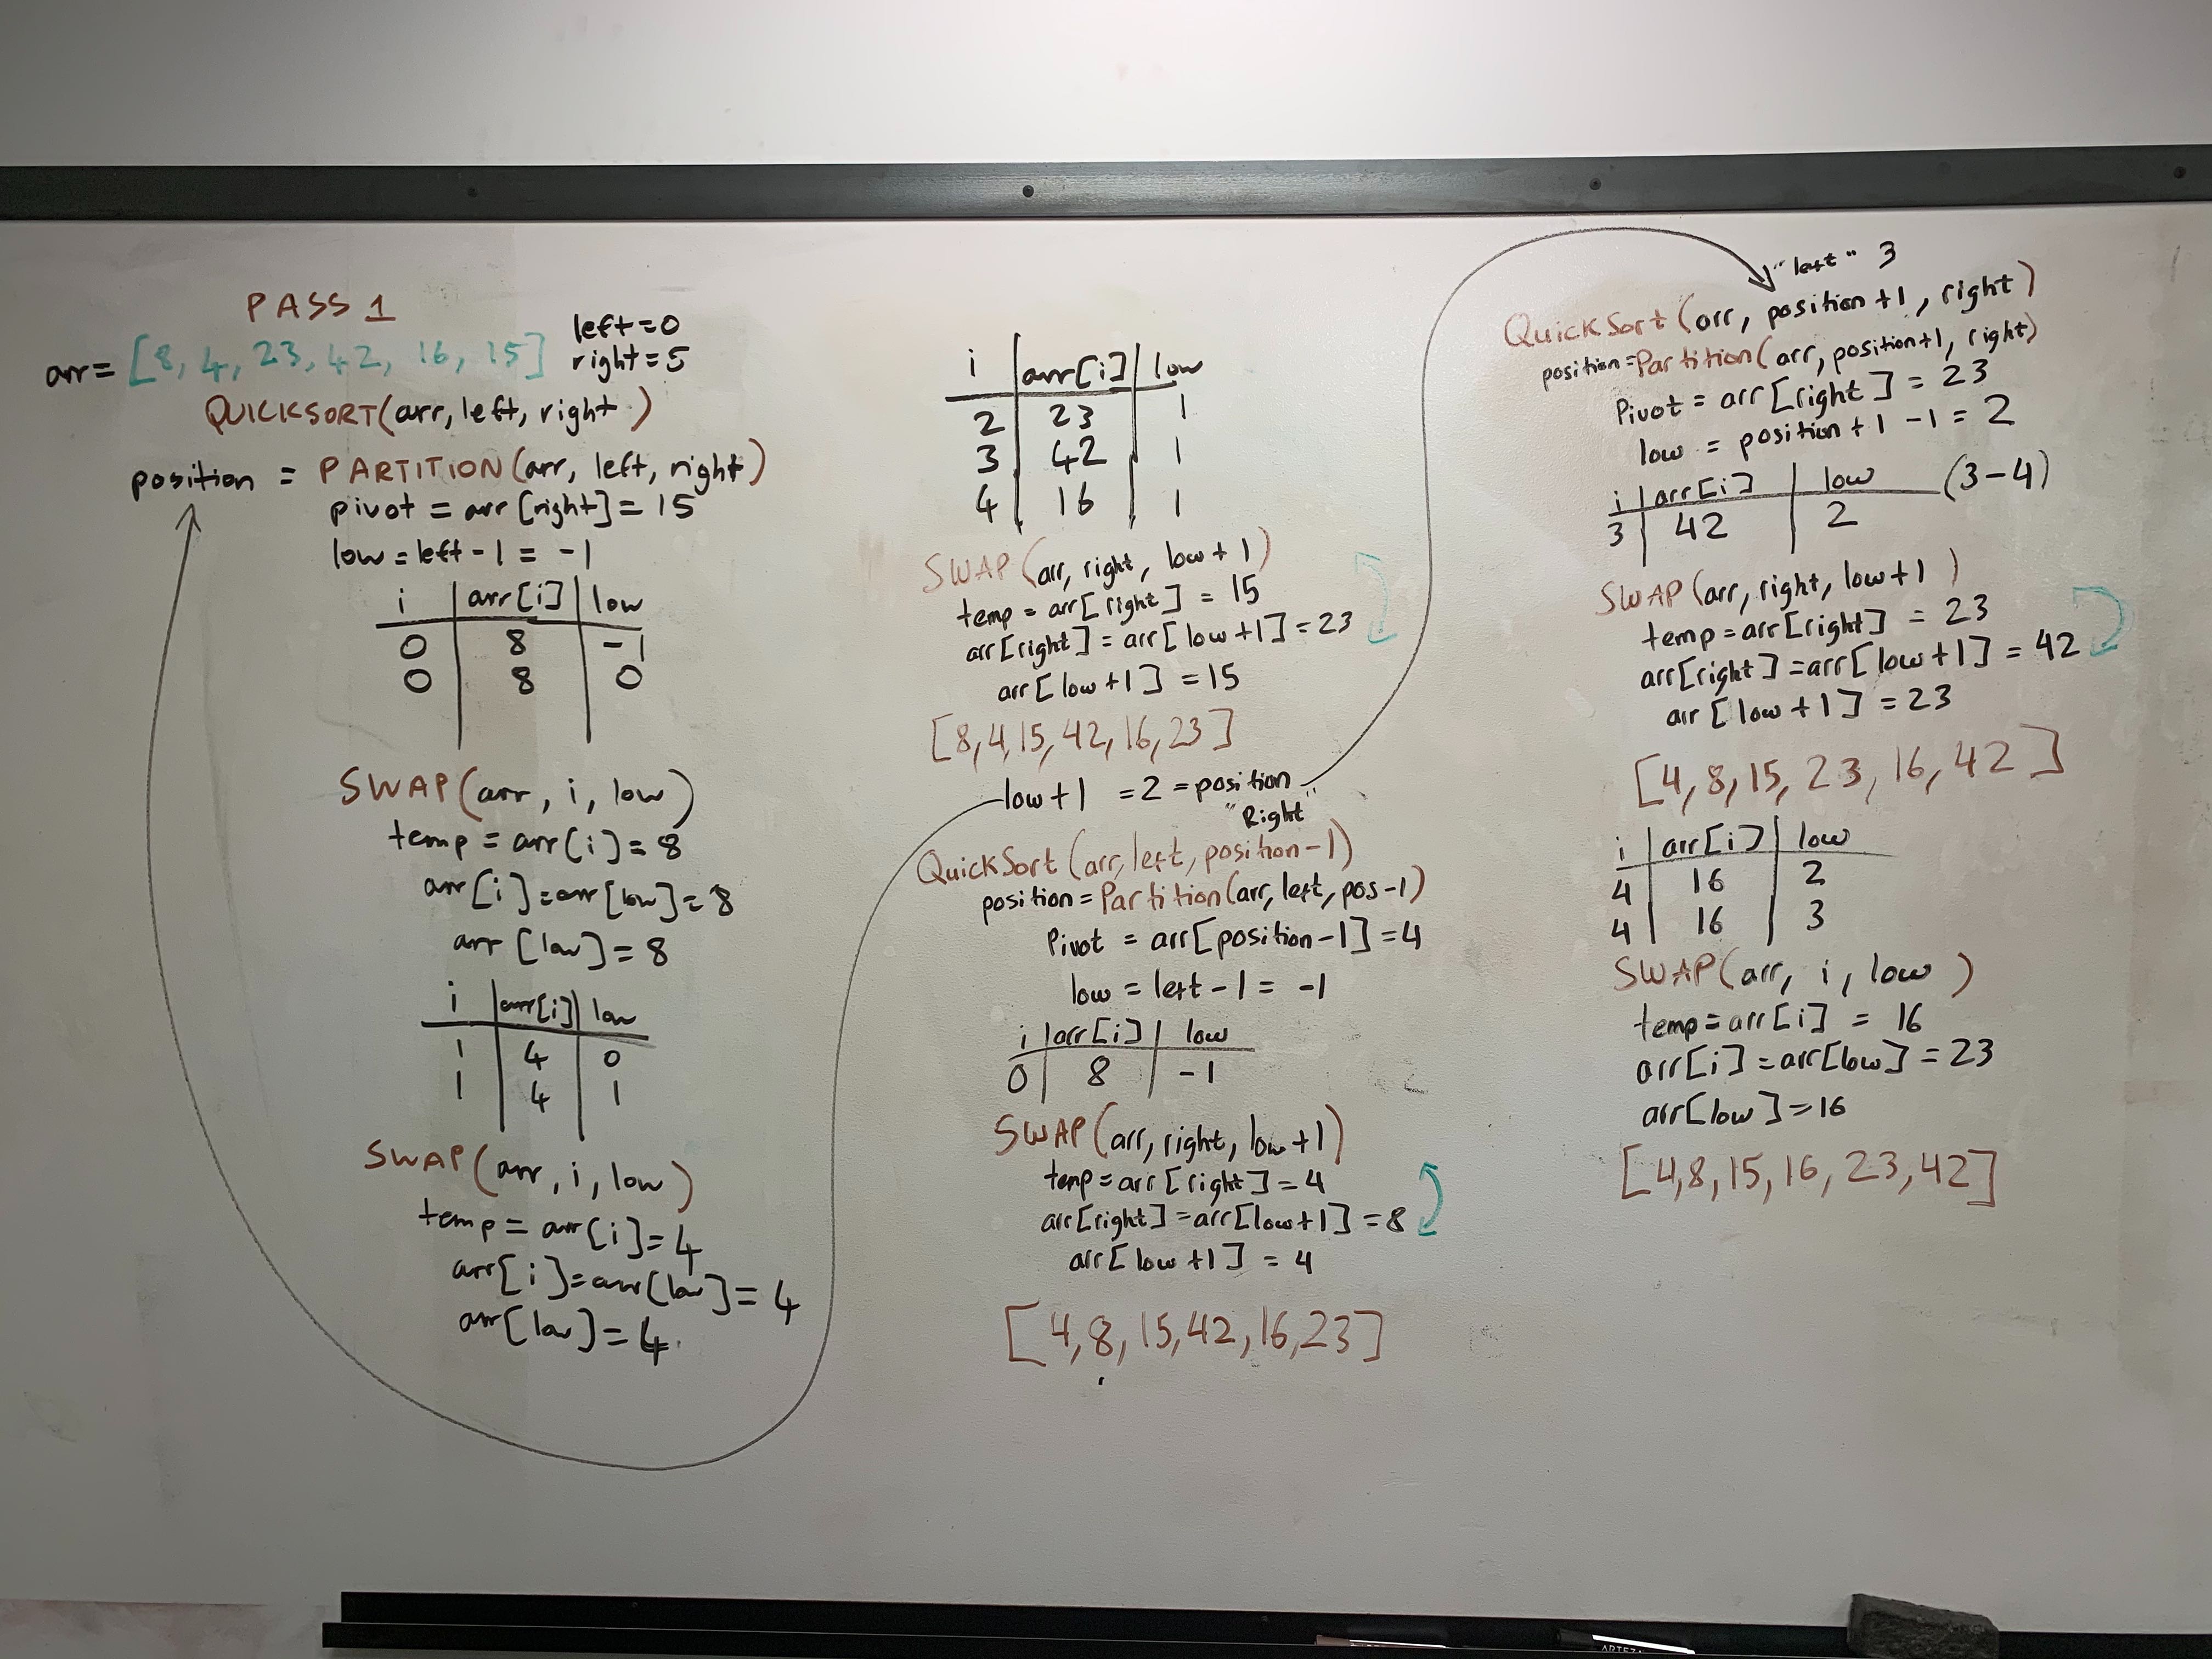 PASS 1
left=0
arr= [8, 4, 23, 42, 16, 15] right=5
QUICKSORT(arr, left, right)
position = PARTITION(arr, left, right)
pivot = arr[right]= 15
low = left - 1 = -1
i | arr[i] | low
0 | 8 | -1
0 | 8 | 0
SWAP(arr, i, low)
temp = arr[i]=8
arr[i]=arr[low]=8
arr[low]=8
i | arr[i] | low
1 | 4 | 0
1 | 4 | 1
SWAP(arr, i, low)
temp = arr[i]=4
arr[i]=arr[low]=4
arr[low]=4
i | arr[i] | low
2 | 23 | 1
3 | 42 | 1
4 | 16 | 1
SWAP(arr, right, low+1)
temp = arr[right] = 15
arr[right]=arr[low+1]=23
arr[low+1] = 15
[8,4,15,42,16,23]
low+1 =2=position
"Right"
QuickSort(arr, left, position-1)
position=Partition(arr, left, pos-1)
Pivot = arr[position-1]=4
low = left-1= -1
i | arr[i] | low
0 | 8 | -1
SWAP(arr, right, low+1)
temp=arr[right]=4
arr[right]=arr[low+1]=8
arr[low+1] = 4
[4,8,15,42,16,23]
"left" 3
QuickSort(arr, position+1, right)
position=Partition(arr, position+1, right)
Pivot = arr[right] = 23
low = position+1-1=2
i | arr[i] | low (3-4)
3 | 42 | 2
SWAP(arr, right, low+1)
temp=arr[right] = 23
arr[right]=arr[low+1] = 42
arr[low+1] = 23
[4,8,15,23,16,42]
i | arr[i] | low
4 | 16 | 2
4 | 16 | 3
SWAP(arr, i, low)
temp=arr[i] = 16
arr[i]=arr[low]=23
arr[low]=16
[4,8,15,16,23,42]